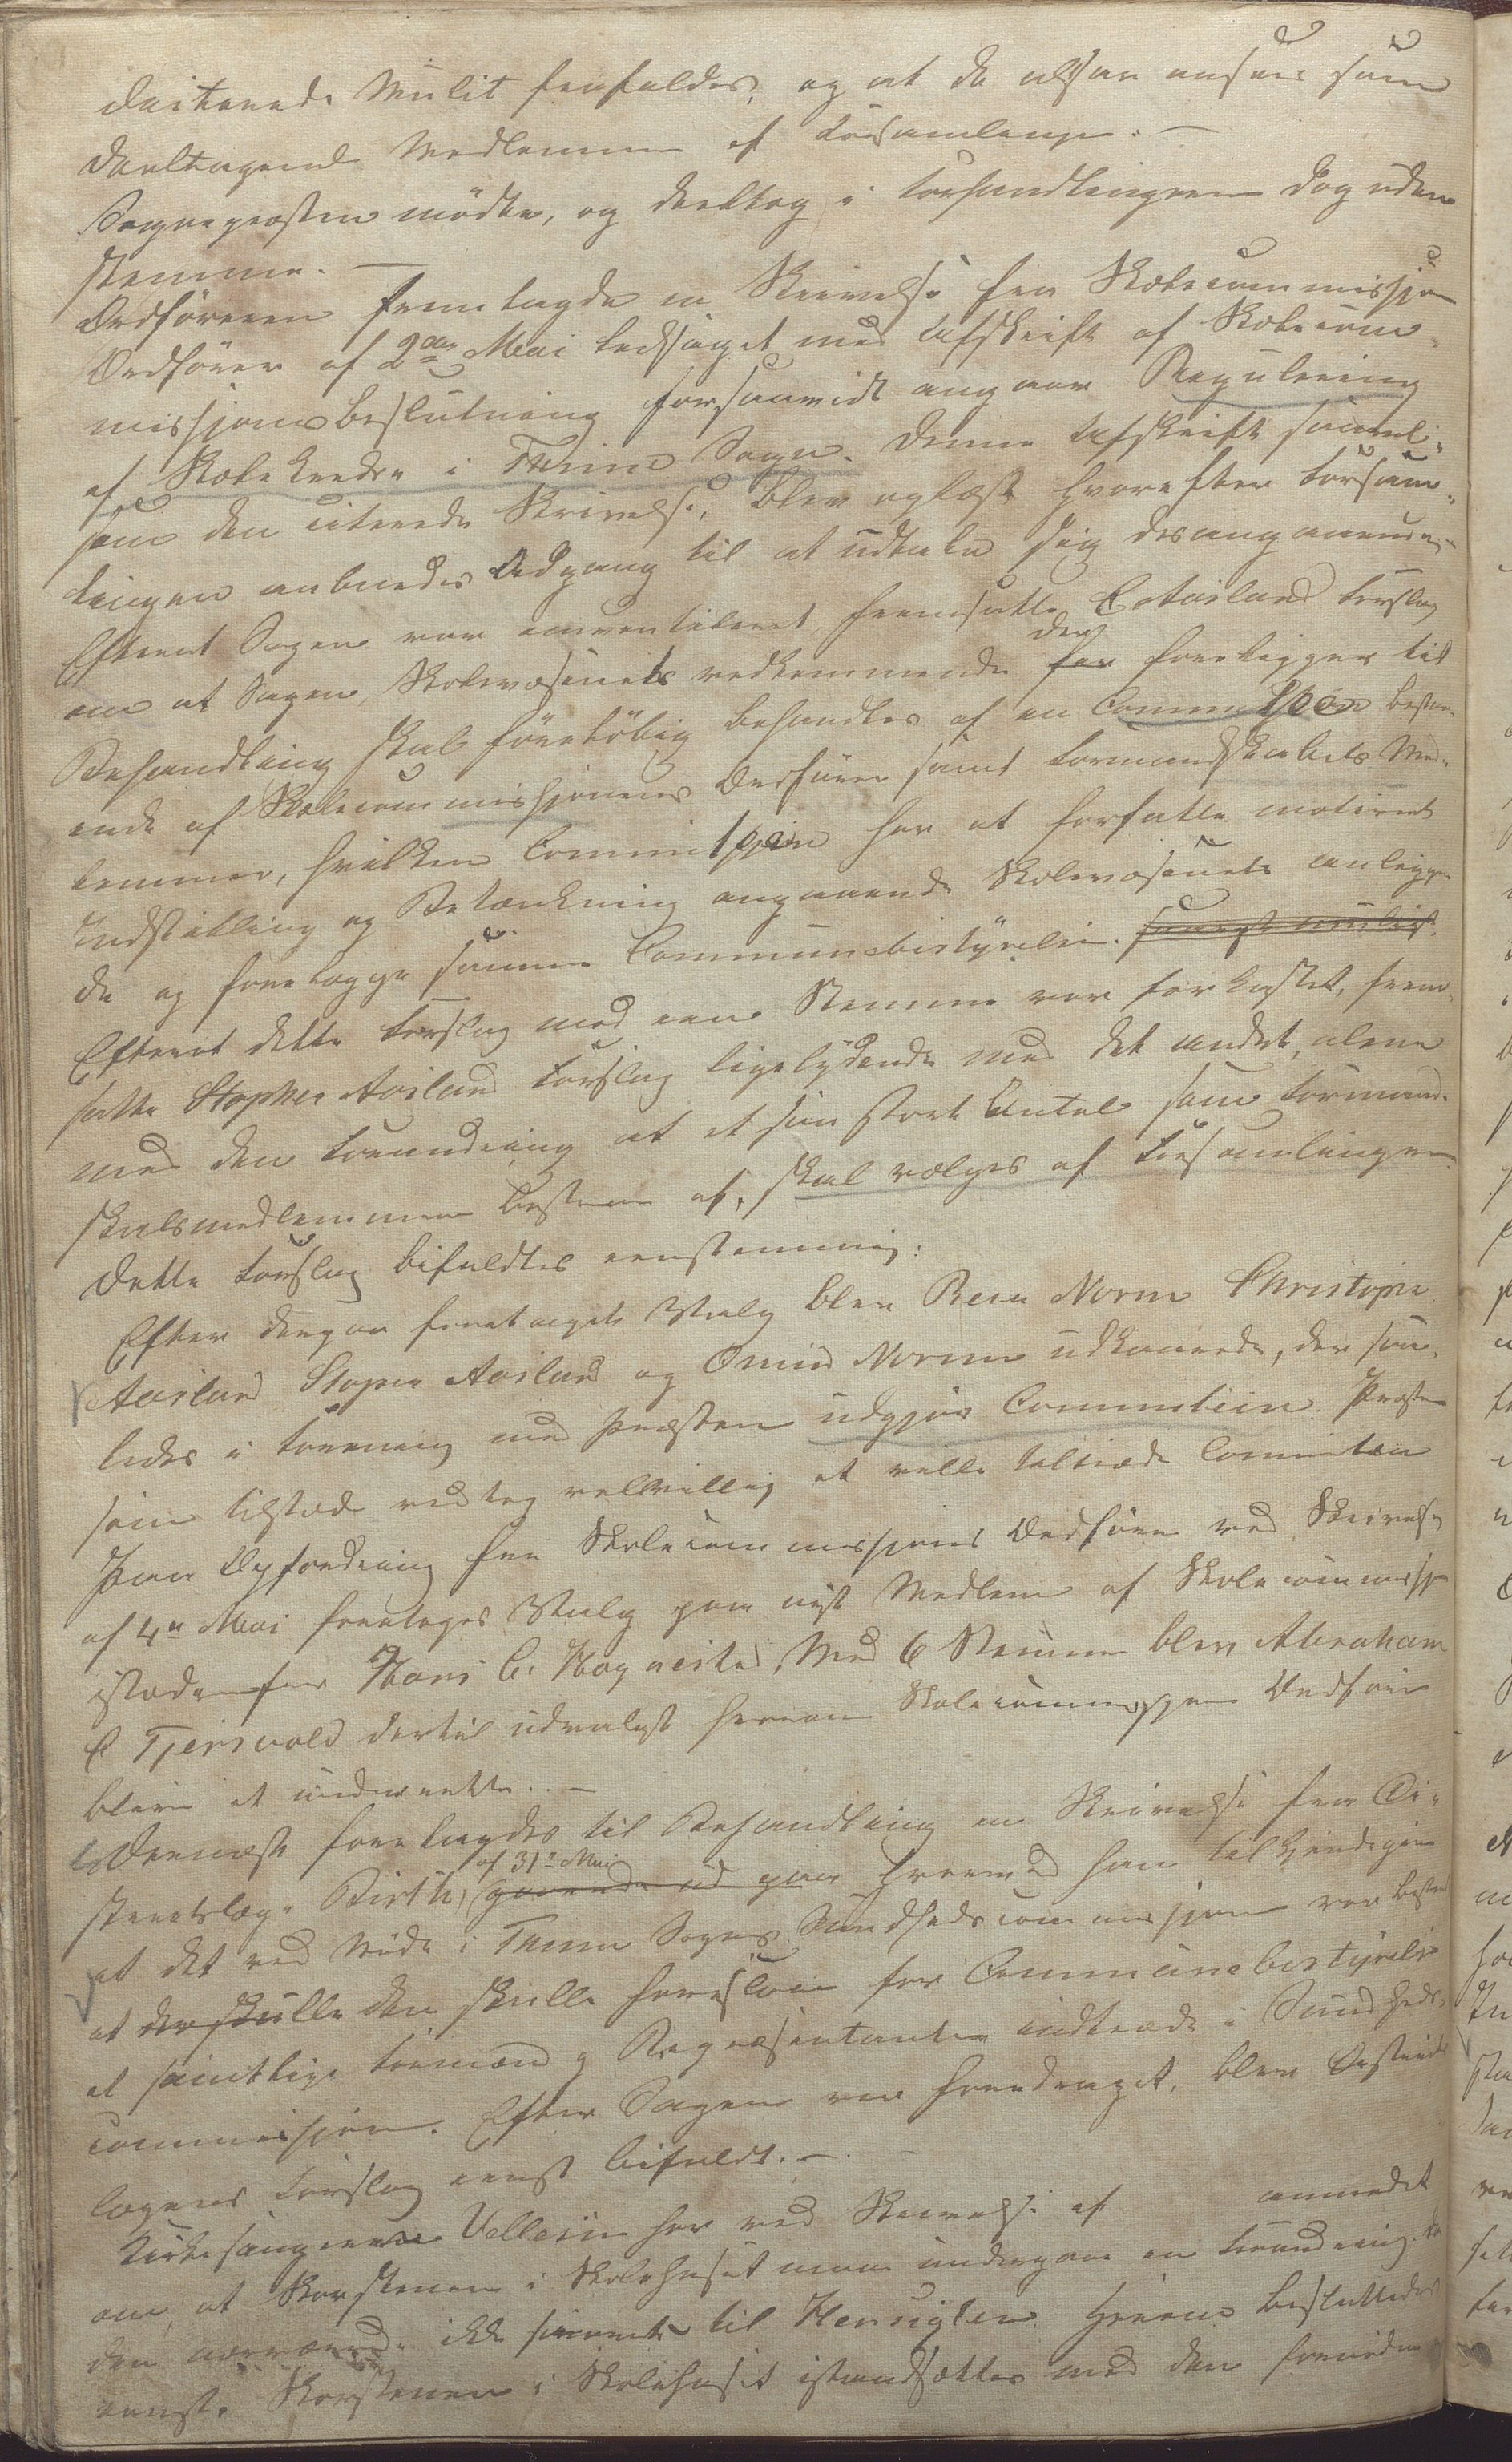 dicterede Mulct frafaldes, og at de altsaa ansees som
deeltagende Medlemmer af Forsamlingen. —
Sognepræsten mødte, og deeltog i Forhandlingerne dog uden
Stemme. —
Ordføreren fremlagde en Skrivelse fra Skolecommissjons
Ordfører af 2den Mai ledsaget med Afskrift af Skolecom-
missjons Beslutning forsaavidt angaar Regulering
af Skolekredse i Sogn. Denne Afskrift saavel-
som den citerede Skrivelse, blev oplæst hvorefter Forsam-
lingen aabnedes Adgang til at udtale sig desangaaende
Efterat Sagen var fremsatte C Aasland Forslag
om at Sagen, Skolevæsenets vedkommende for der foreligger til
Behandling skal foreløbig behandles af en Commission bestaa-
ende af Skolecommissjonens Ordfører samt Formandskabets Med-
lemmer, hvilken Commission har at forfatte motiveret
Indstilling og Betænkning angaaende Skolevæsenets anliggen-
de og forelægge samme Communebestyrelsen.
Efterat dette Forslag mod een Stemme var forkastet, frem-
satte Stopher Aasland Forslag ligelydende med det andet, alene
med den Forandring at et saa stort Antal som Formand-
skabsmedlemmerne bestaar af, skal vælges af Forsamlingen.
Dette Forslag bifaldtes eenstemmig:
Efter derpaa foretaget Valg blev Reer Norum Christopher
Aasland Stopher Aasland og Omund Norum udkaarede, der saa-
ledes i Forening med Præsten udgjør Committeen. Præsten
som tilstede vedtog velvillig at ville tiltræde Committeen
Paa Opfordring fra Skolecommissjons Ordfører ved Skrivelse
af 4de Mai foretoges Valg paa nyt Medlem af Skolecommissj
istedenfor Hans C. Hognestad, Med 6 Stemmer blev Abraham
C Tjensvold dertil udvalgt hvorom Skolecommissjonens Ordfører
bliver at underrette. —
Dernæst forelagdes til Behandling en Skrivelse fra Di-
strictslæge Birth, af 31te Mai gaaende ud paa hvorved han tilkjendegiver
at det ved Møde i Sogns Sundhedscommissjon var bestemt
at der skulle den skulle foreslaa for Communebestyrelsen
at samtlige Formænd og Repræsentanter indtræde i Sundheds-
commissjon. Efter Sagen var foredraget, blev Districts
lægens Forslag eenst bifaldt. —
Kirkesangeren Vellesen har ved Skrivelse af anmeldt
om, at Skorstenen i Skolehuset maa undergaae en Forandring, da
den nærværende ikke til Hensigten. Herom besluttedes
eenst. Skorstenen i Skolehuset istandsættes med den fornødne